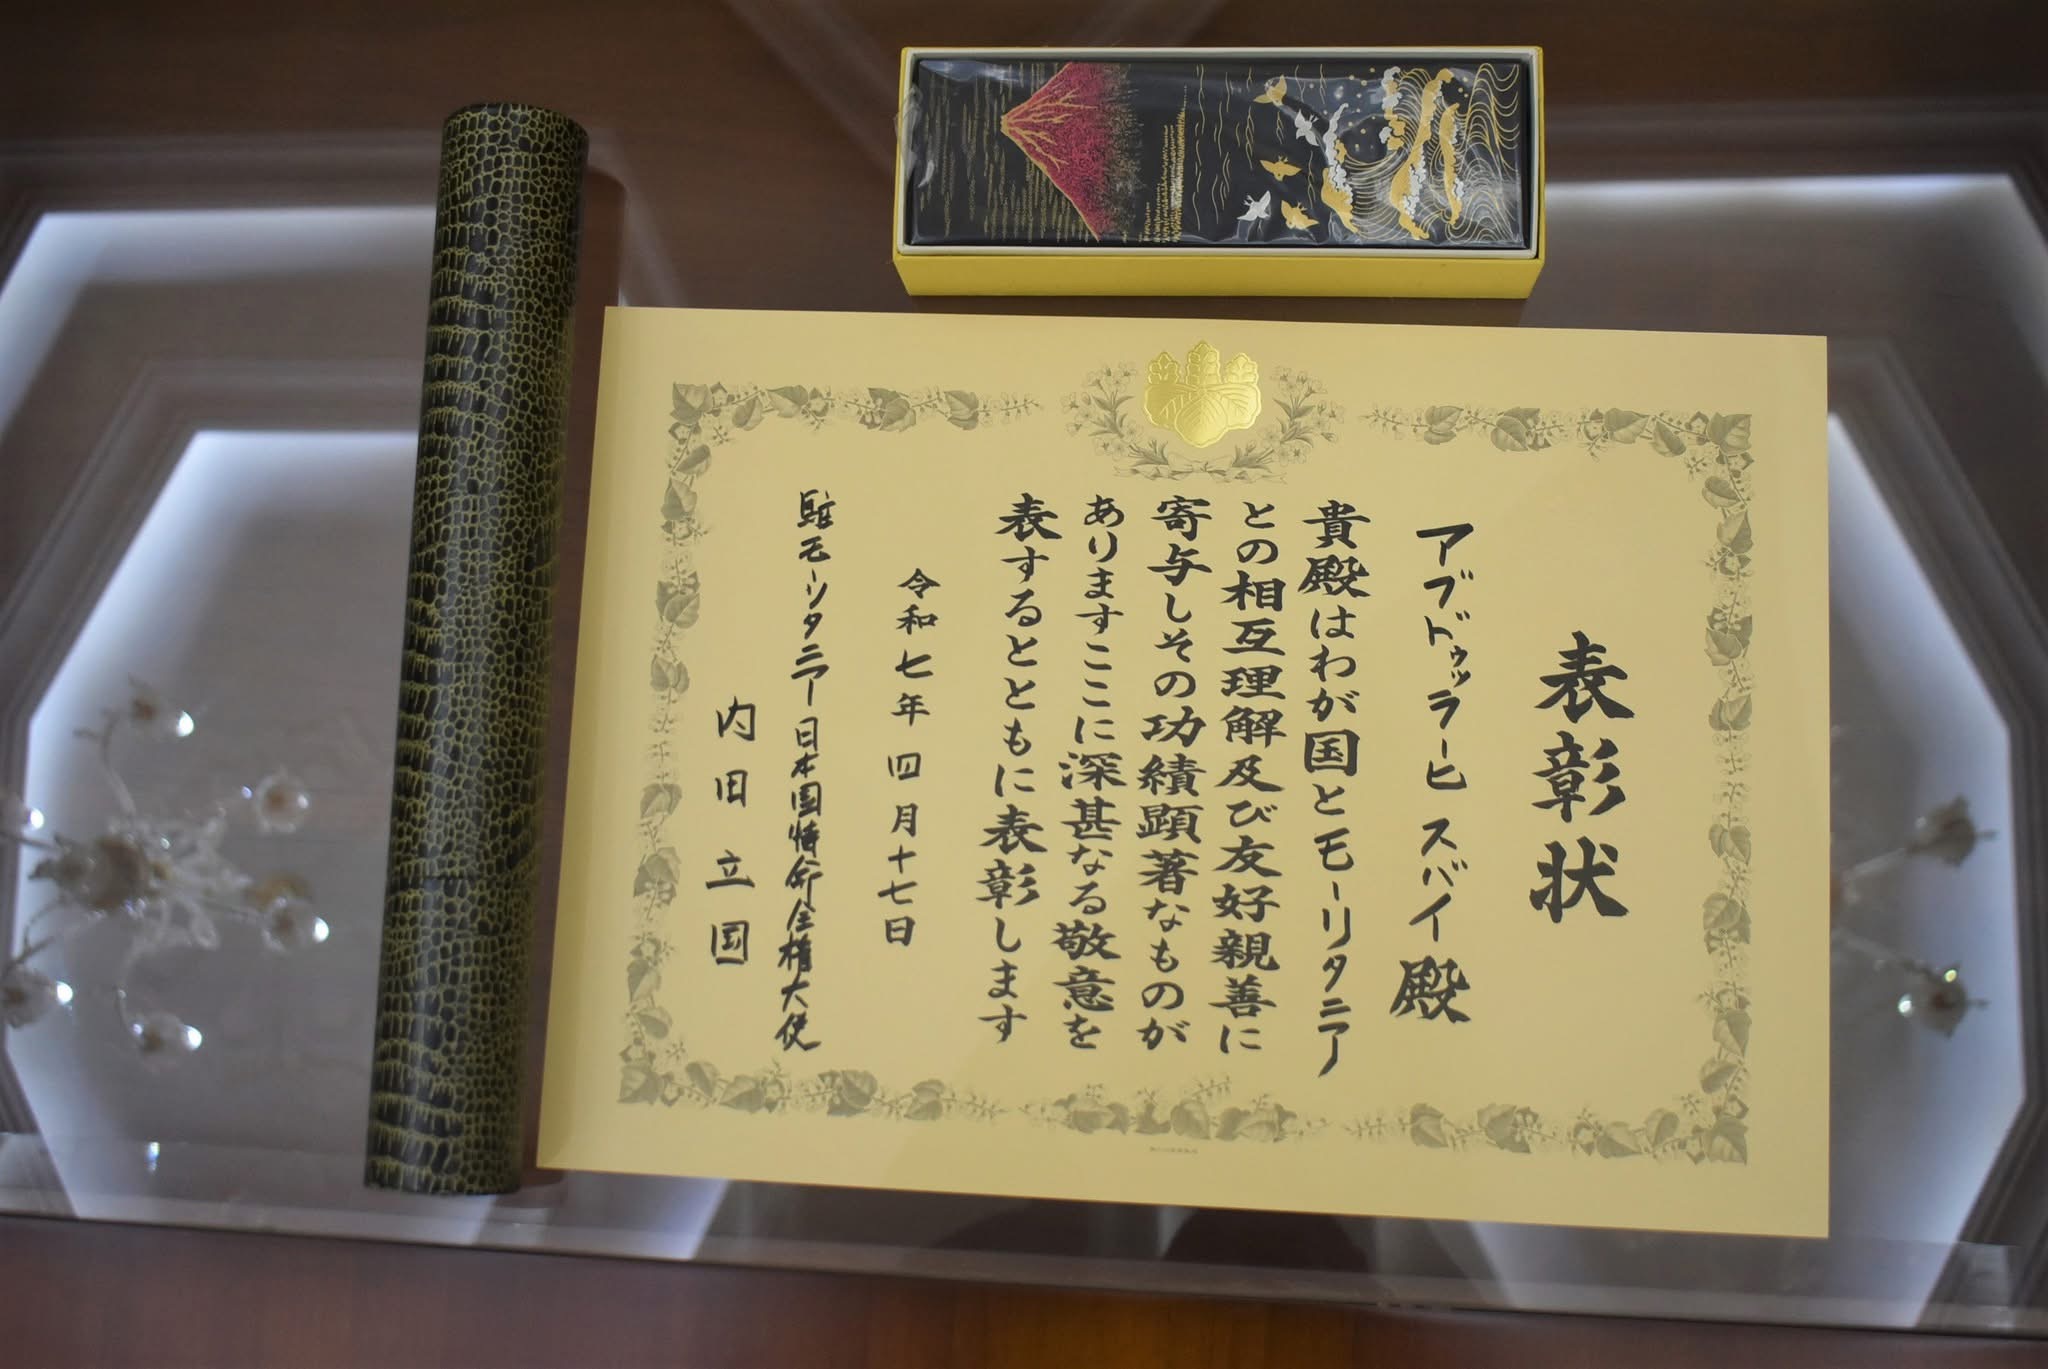 表彰状
アブドゥッラーヒ スバイ 殿
貴殿はわが国とモーリタニア
との相互理解及び友好親善に
寄与しその功績顕著なものが
ありますここに深甚なる敬意を
表するとともに表彰します
令和七年四月十七日
駐モーリタニア日本国特命全権大使
内田立国